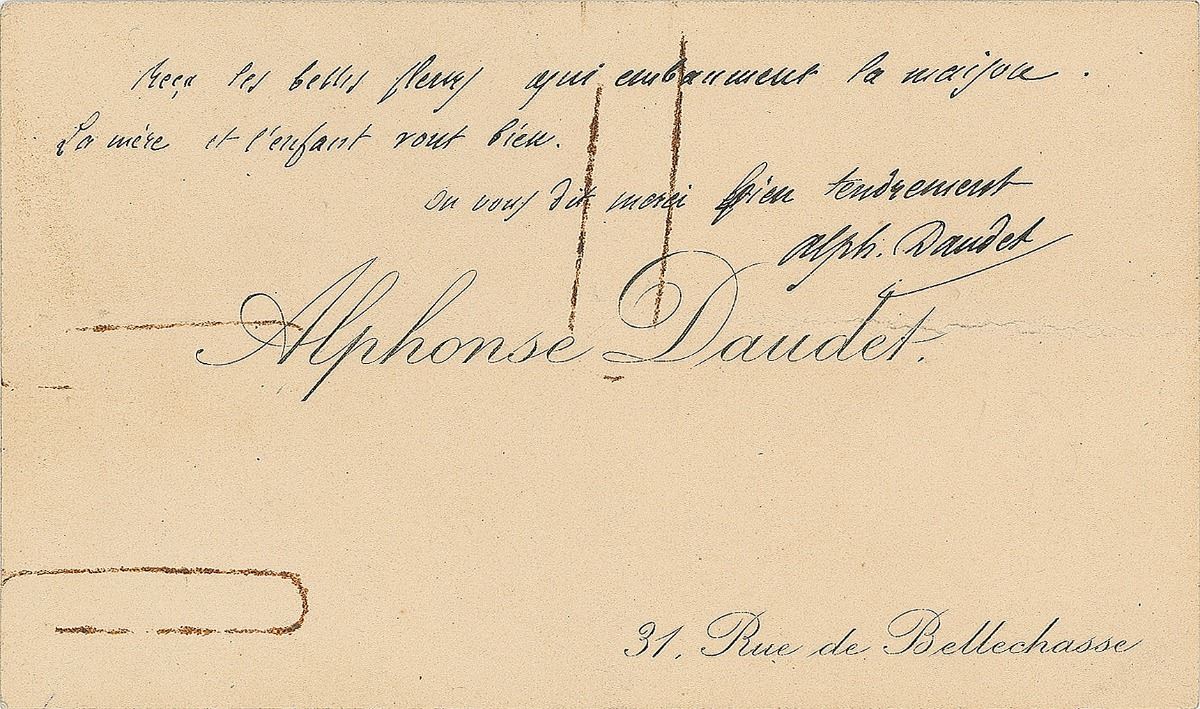 Reçu les belles fleurs qui embaument la maison.
La mère et l'enfant vont bien.
On vous dit merci bien tendrement
Alph. Daudet
Alphonse Daudet.
31, Rue de Bellechasse